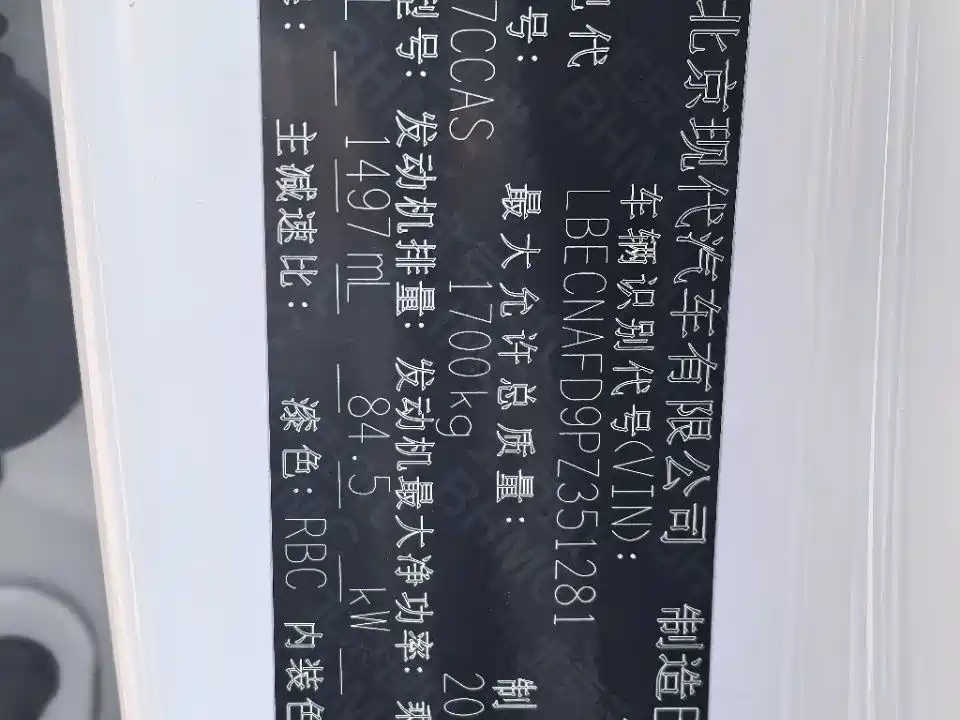 北京现代汽车有限公司 制造
车辆识别代号(VIN):
现代 LBECNAFD9PZ351281
号: 最大允许总质量: 制
7CCAS 1700kg 20
型号: 发动机排量: 发动机最大净功率: 乘
L 1497mL 84.5 kW
主减速比: 漆色: RBC 内装色